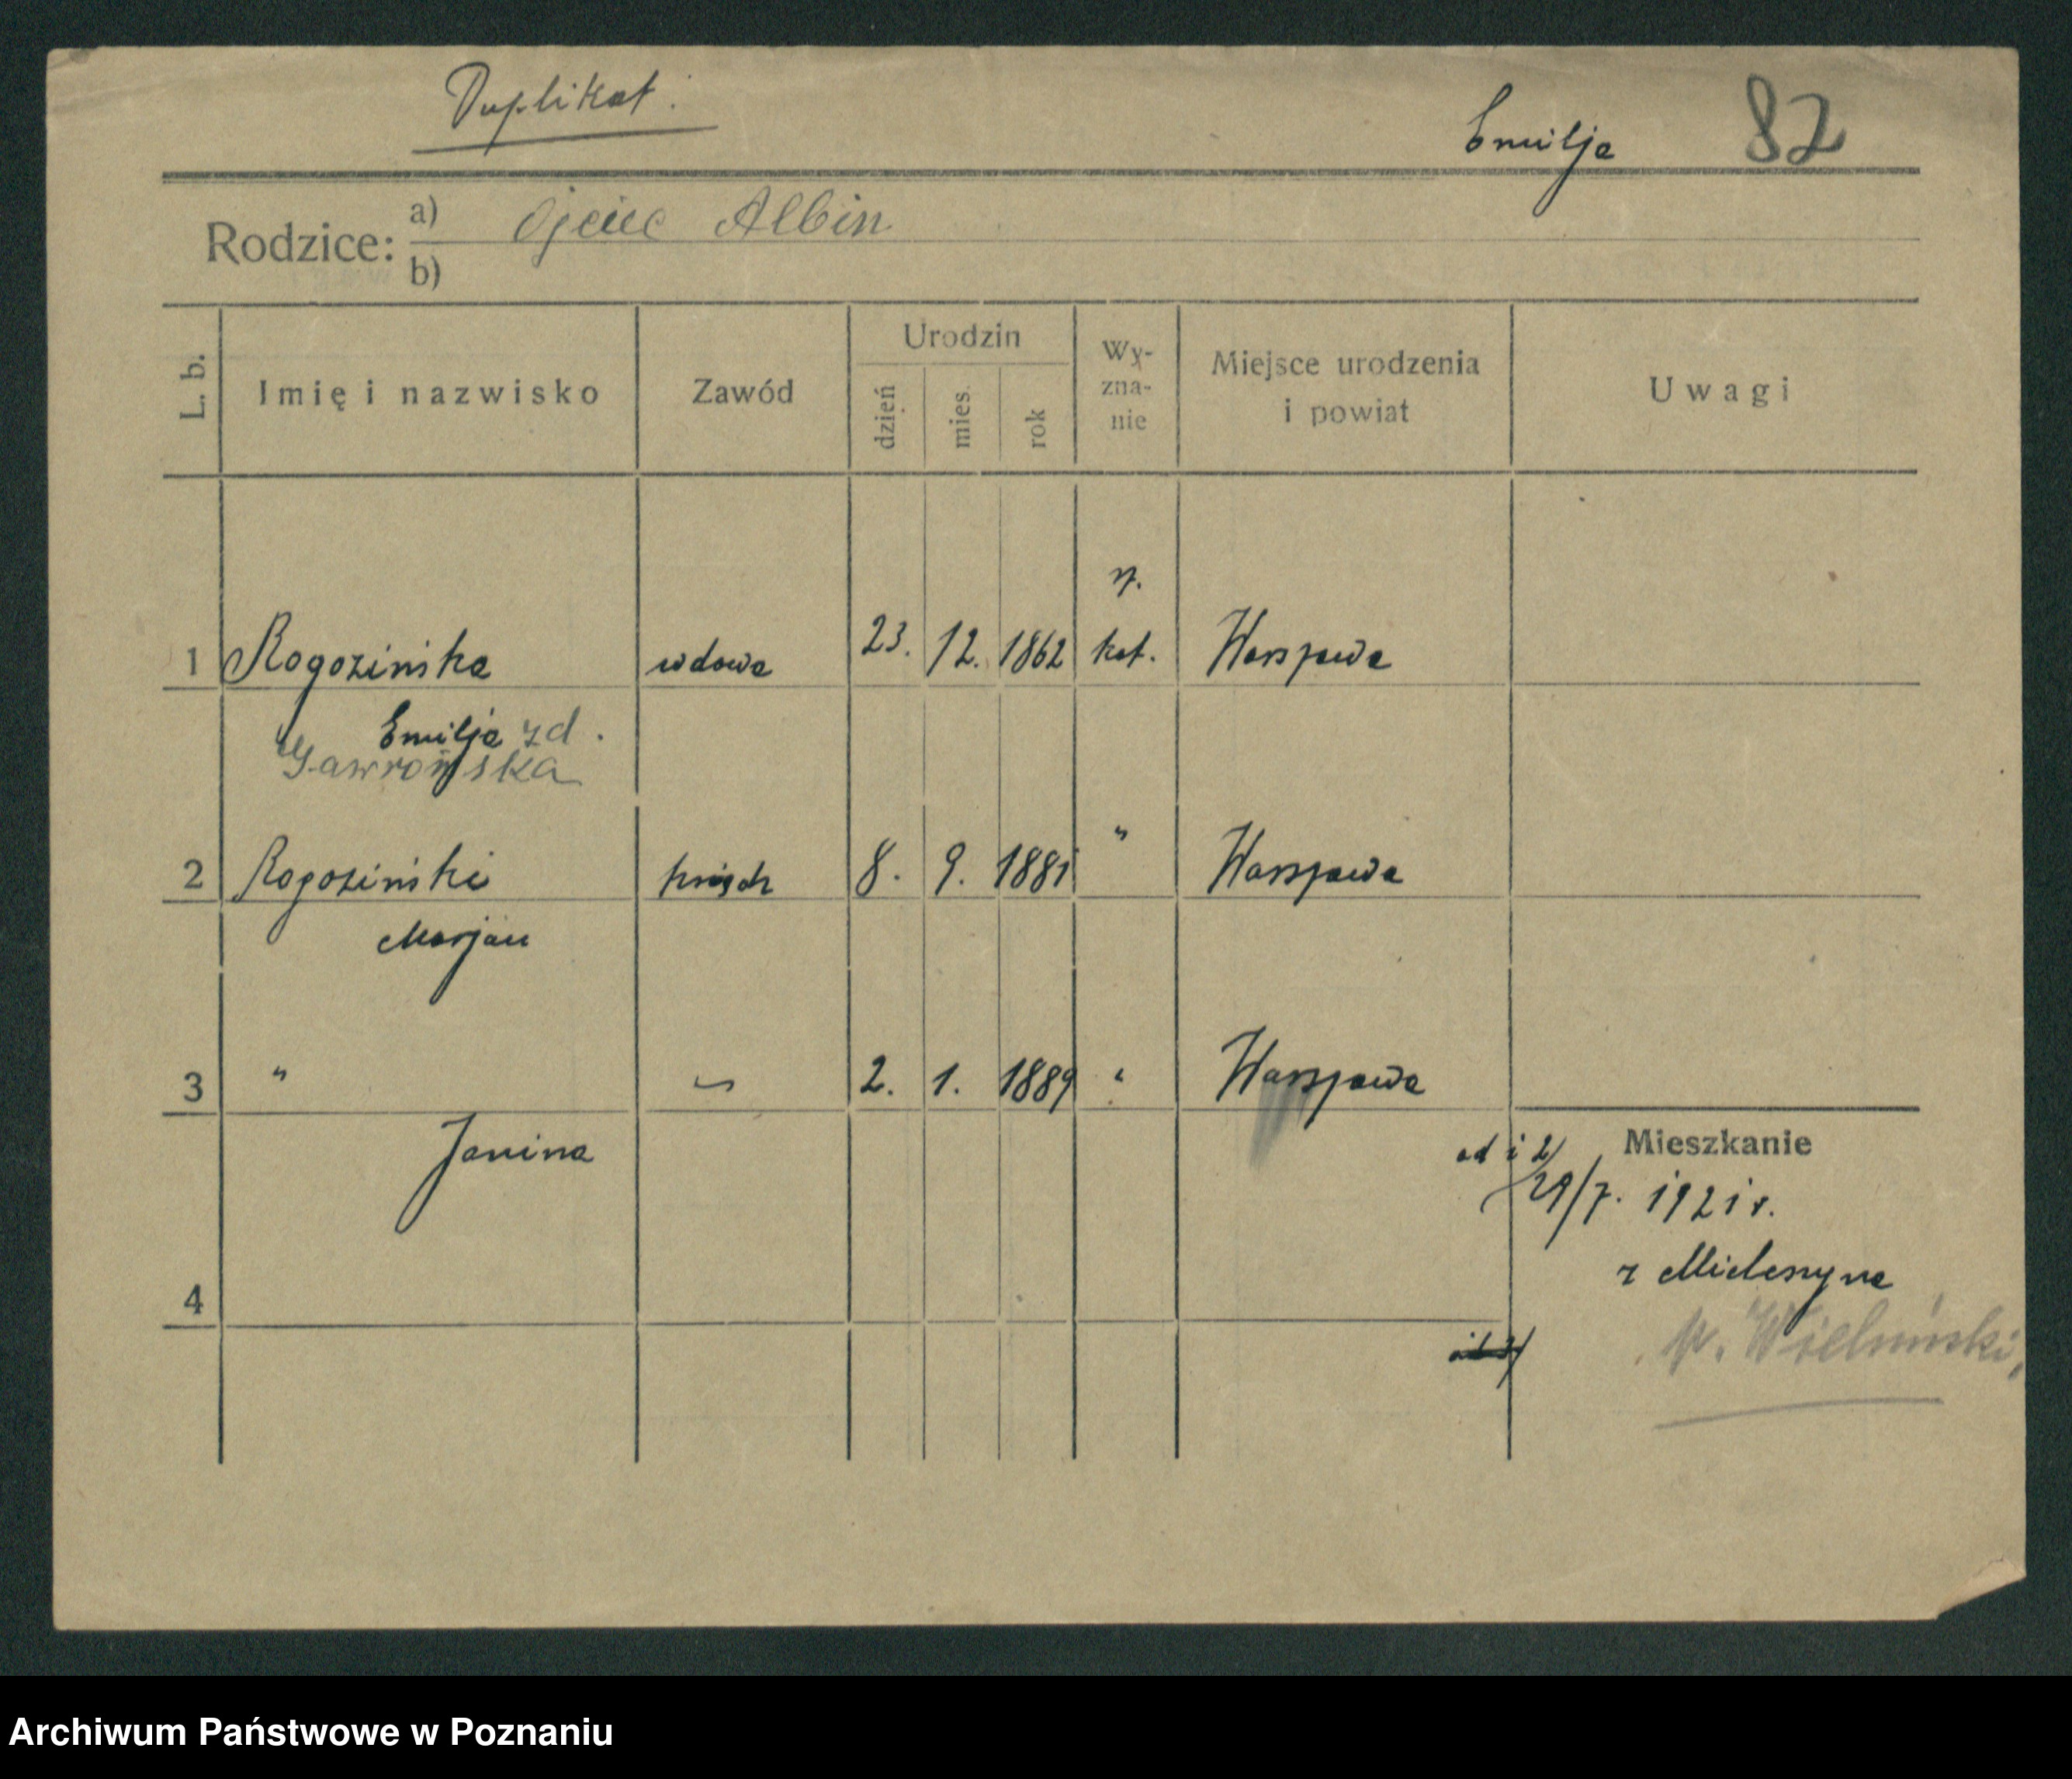 Duplikat.
Emilja 82
Rodzice: a) Ojciec Albin
b)
L. b. Imię i nazwisko Zawód Urodzin dzień mies. rok Wy-
zna-
nie Miejsce urodzenia
i powiat Uwagi
1 Rogozińska wdowa 23. 12. 1862 rz. kat. Warszawa
Emilja zd.
Gawrońska
2 Rogoziński 8. 9. 1881 " Warszawa
Marjan
3 " " 2. 1. 1889 " Warszawa
Janina
Mieszkanie
ad 1 2/
29/7. 1921 r.
z Mieleszyna
4
Archiwum Państwowe w Poznaniu